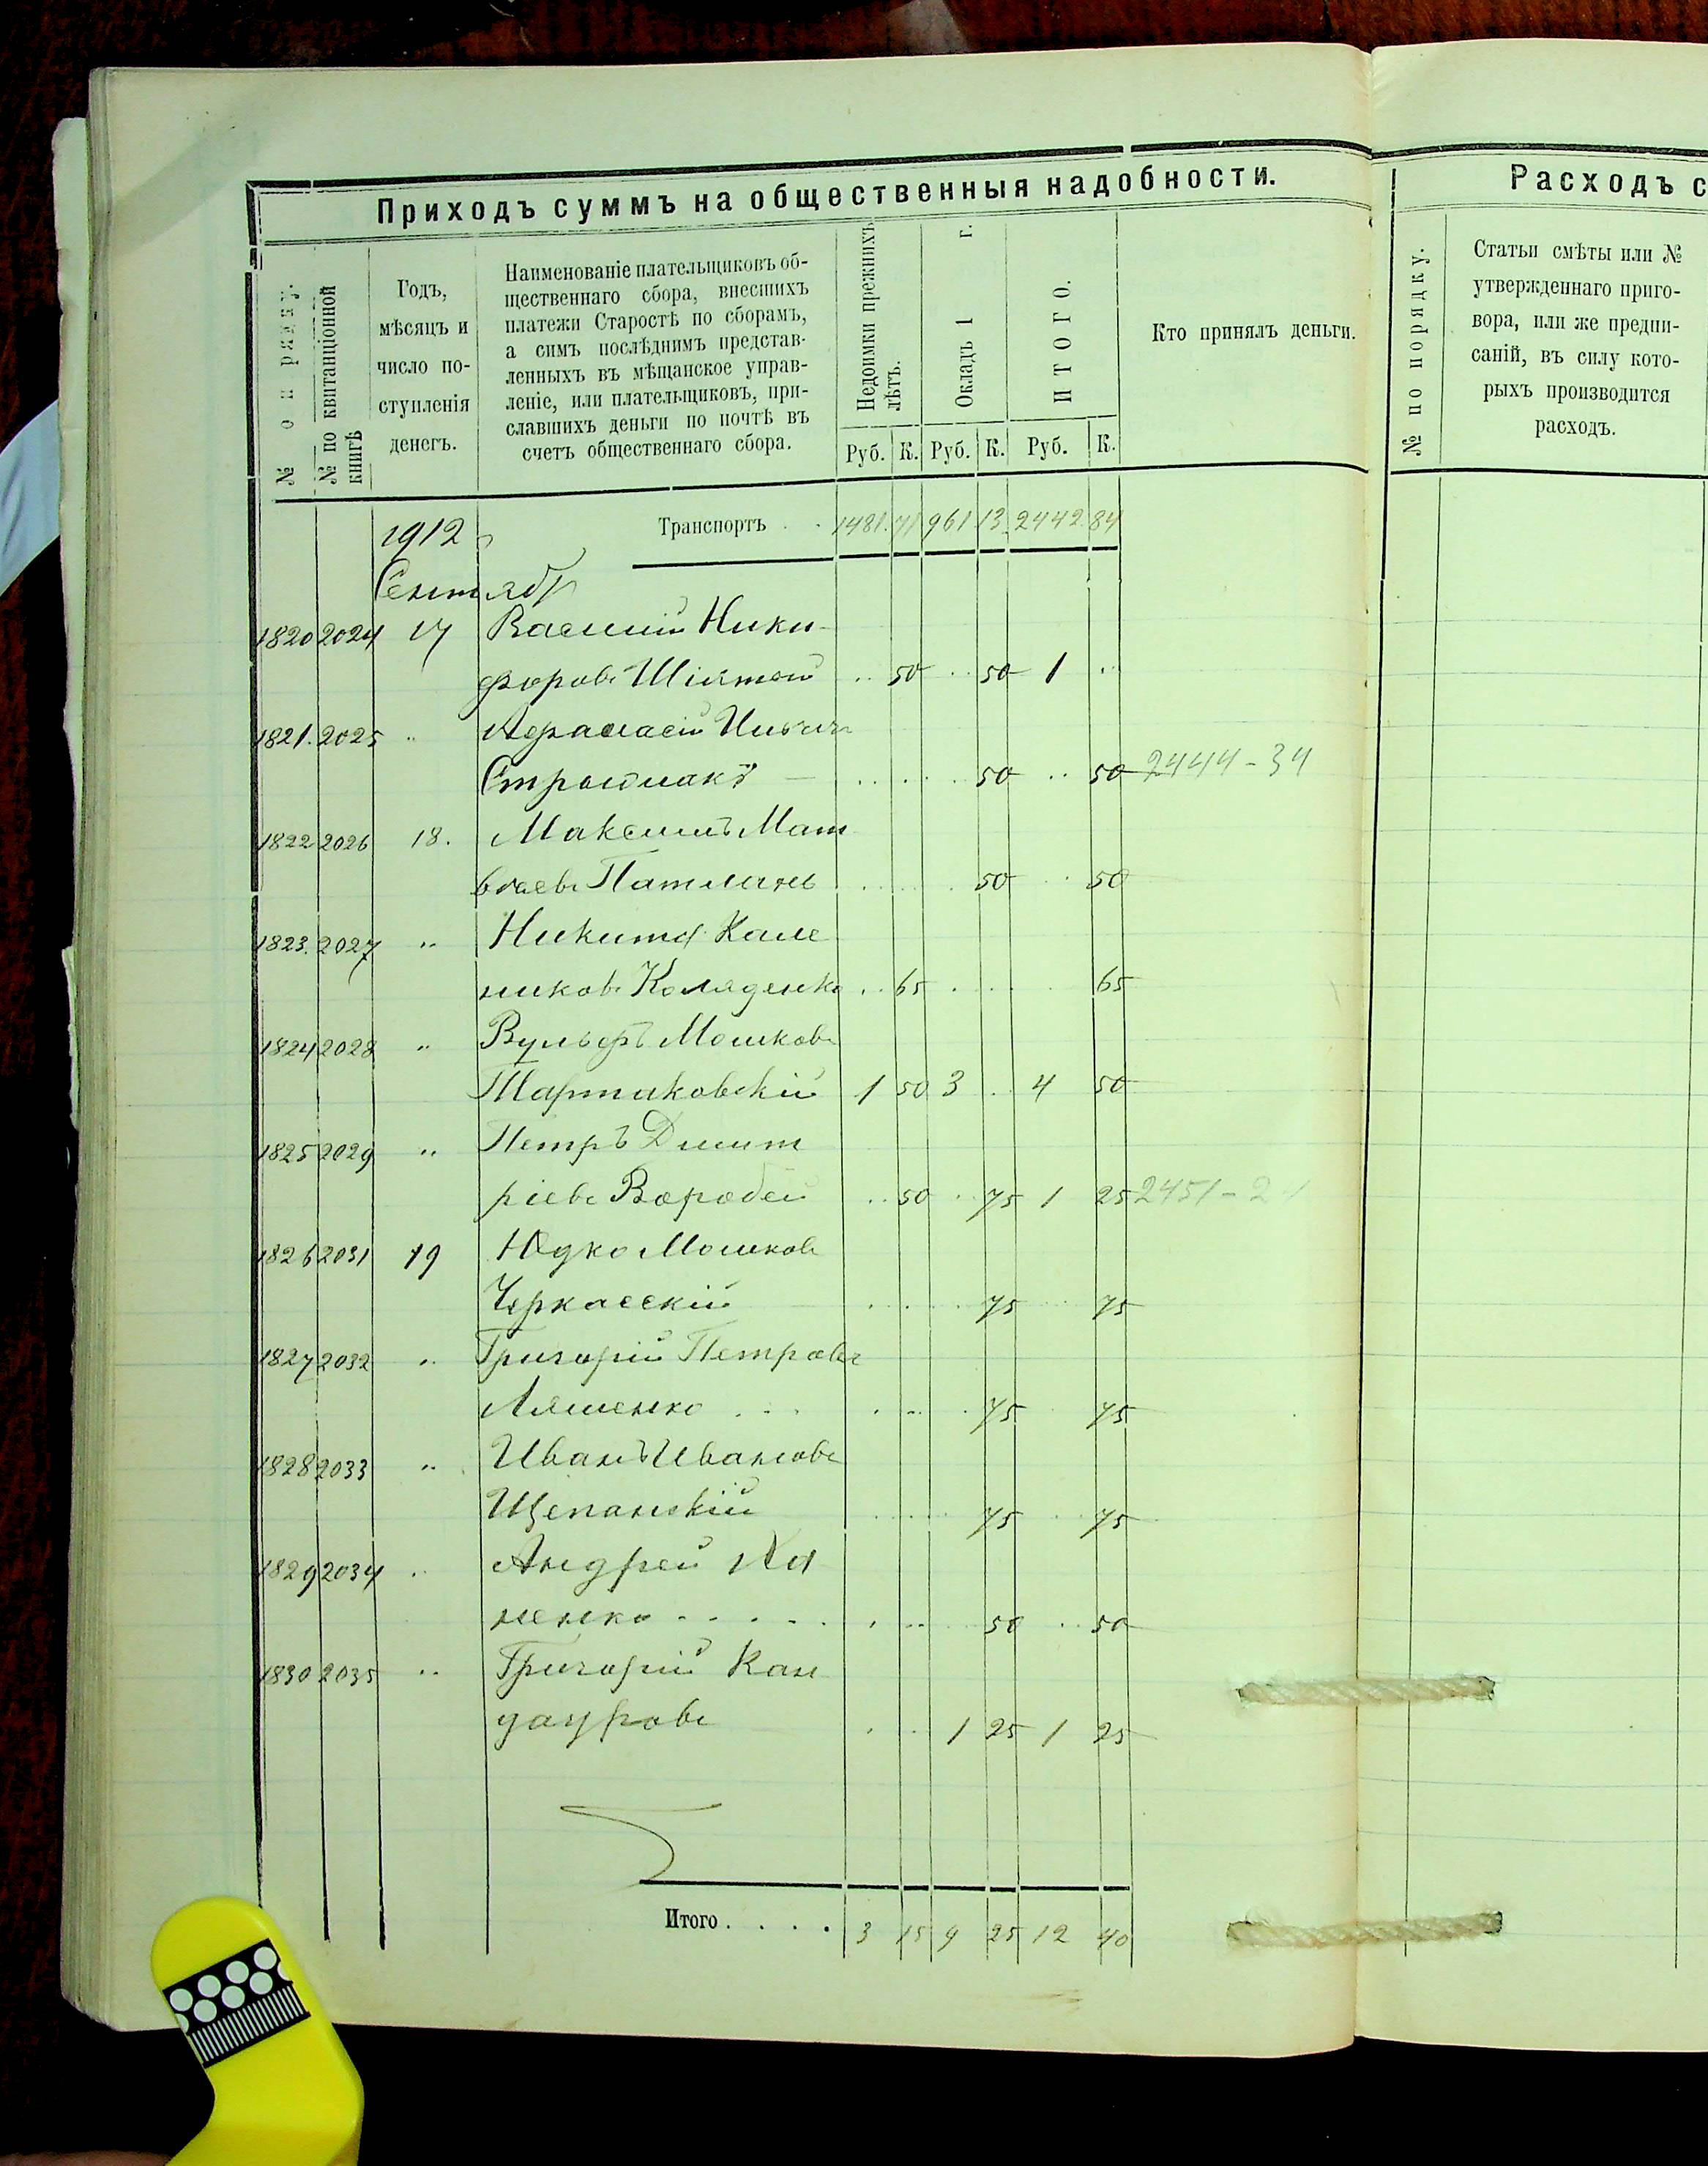 Приходъ суммъ на общественныя надобности.
№ по квитанціонной книгѣ
Годъ,
мѣсяцъ и
число по-
ступленія
денегъ.
Наименованіе плательщиковъ об-
щественнаго сбора, внесшихъ
платежи Старостѣ по сборамъ,
а симъ послѣднимъ представ-
ленныхъ въ мѣщанское управ-
леніе, или плательщиковъ, при-
славшихъ деньги по почтѣ въ
счетъ общественнаго сбора.
Недоимки прежнихъ лѣтъ.
Окладъ 1 г.
ИТОГО.
Руб. К. Руб. К. Руб. К.
Кто принялъ деньги.
1912 Транспортъ . . 1481 71 961 13 2442 84
Сентябр
1820 2024 17 Василій Ники-
форовъ .. 50 .. 50 1 ..
1821. 2025 "
50 .. 50 2444-34
1822 2026 18. Максимъ Мат
вѣевъ 50 .. 50
1823. 2027 " Никита Кале
никовъ Коляденко .. 65 . . . . 65
1824 2028 " Вульфъ Мошковъ
Тартаковскій 1 50 3 .. 4 50
1825 2029 " Петръ Димит
ріевъ Воробей .. 50 .. 75 1 25 2451-2
1826 2031 19 Юдко Мошковъ
Черкасскій . . . . 75 .. 75
1827 2032 " Григорій Петровъ
Ляшенко . . . . . . . 75 . 75
1828 2033 " Иванъ Ивановъ
Щепанскій . . . . . 75 .. 75
1829 2034 " Андрей
ненко - - . - . . . . 50 .. 50
1830 2035 " Григорій Кан
дауровъ . . 1 25 1 25
Итого . . . . . 3 15 9 25 12 40
Расходъ с
№ по порядку.
Статьи смѣты или №
утвержденнаго приго-
вора, или же предпи-
саній, въ силу кото-
рыхъ производится
расходъ.